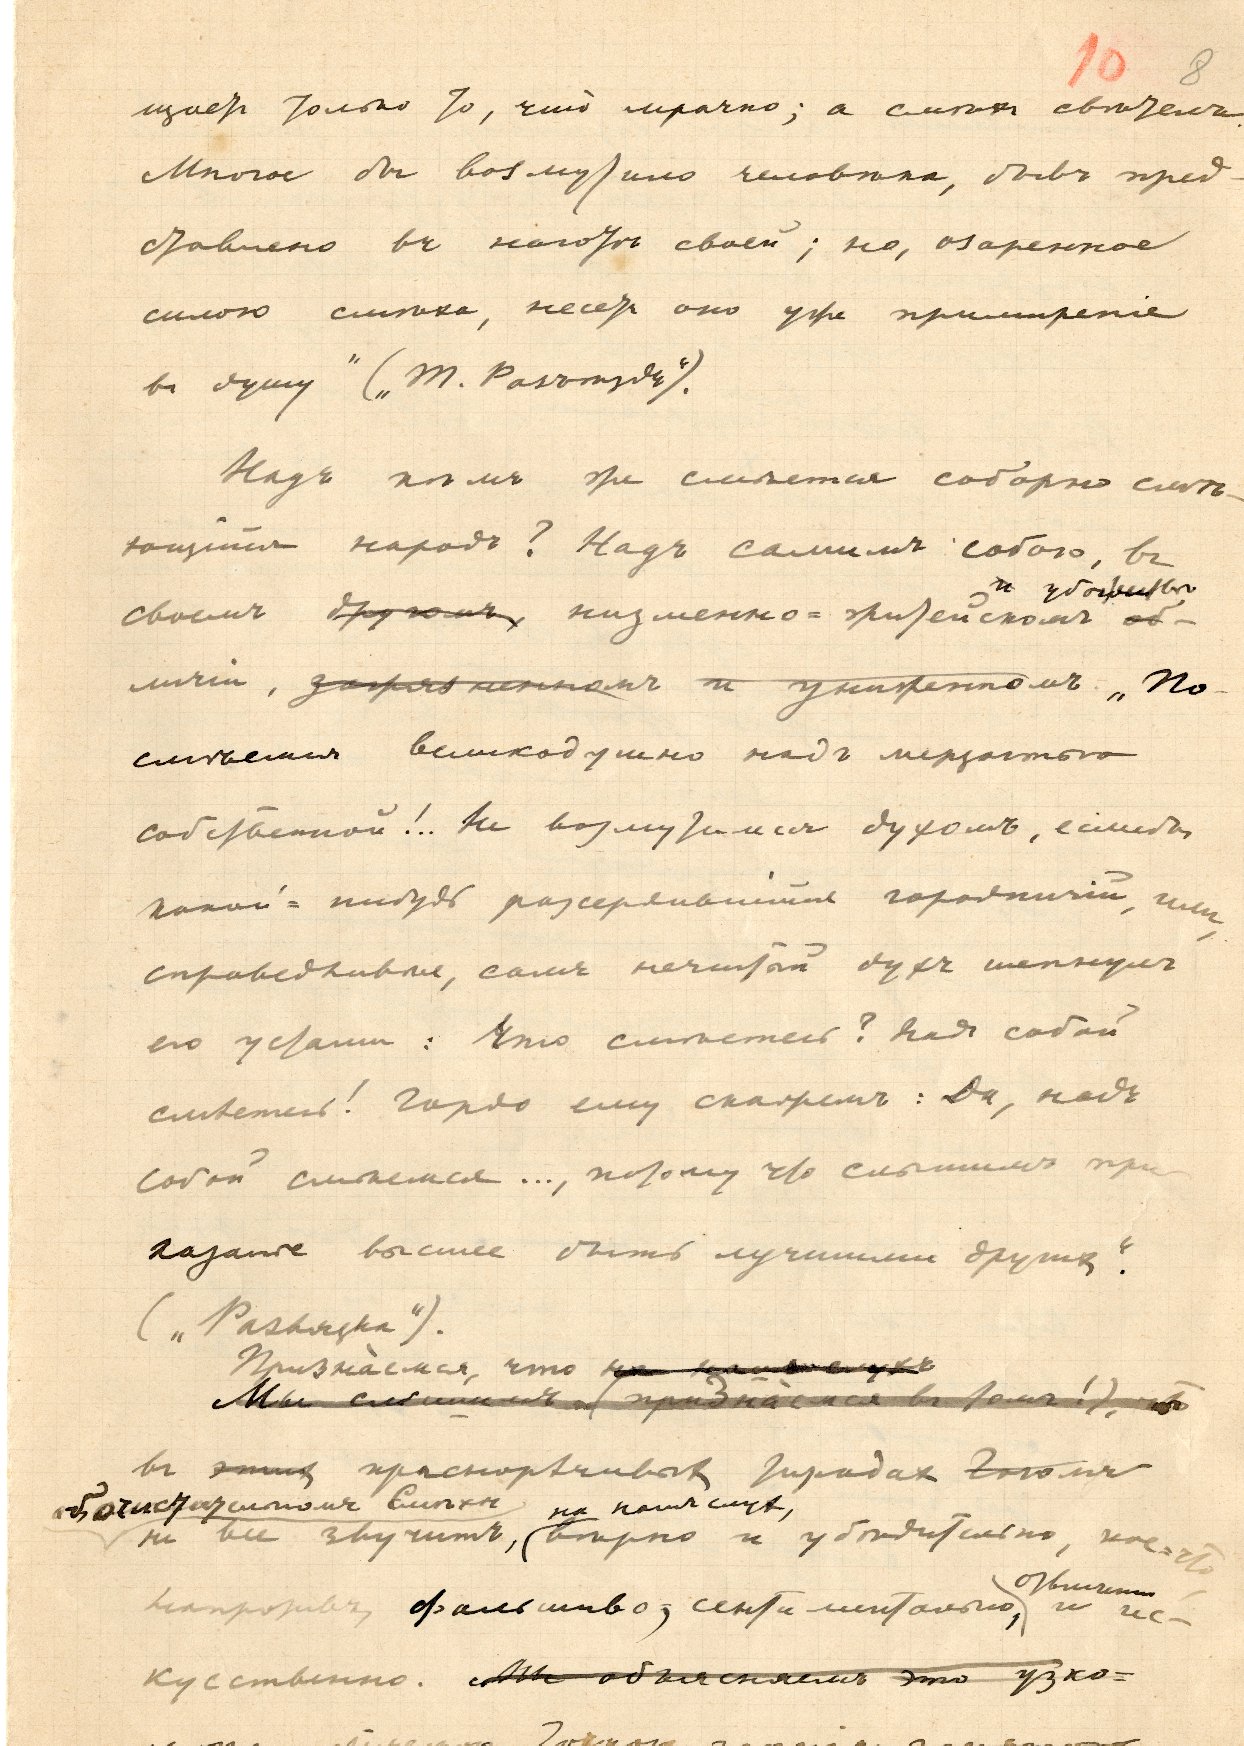 10 8
щаетъ только то, что мрачно; а смѣхъ свѣтелъ.
Многое бы возмутило человѣка, бывъ пред-
ставлено въ наготѣ своей; но, озаренное
силою смѣха, несетъ оно уже примиреніе
въ душу" („Т. Разъѣздъ").
Надъ кѣмъ же смѣется соборно смѣ-
ющійся народъ? Надъ самимъ собою, въ
и убогомъ
своемъ другомъ, низменно=житейскомъ об-
личіи, загрязненномъ и униженномъ. „По-
смѣемся великодушно надъ мерзостью
собственной!.. Не возмутимся духомъ, еслибы
какой=нибудь разсердившійся городничій, или,
справедливѣе, самъ нечистый духъ шепнулъ
его устами: Что смѣетесь? Надъ собой
смѣетесь! Гордо ему скажемъ: Да, надъ
собой смѣемся..., потому что слышимъ при-
казанье высшее быть лучшими другихъ".
(„Развязка").
Признаемся, что на нашъ слухъ
Мы слышимъ (признаемся въ томъ!), что
въ этихъ краснорѣчивыхъ тирадахъ Гоголя
объ очистительномъ Смѣхѣ на нашъ слухъ,
не все звучитъ, вѣрно и убѣдительно, кое=что,
напротивъ, фальшиво, сентиментально, отвлеченно и ис-
кусственно. Мы объясняемъ это узко=